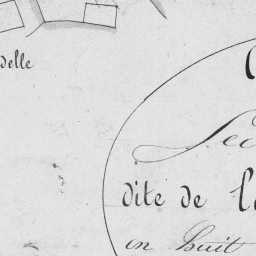 delle
Sec
dite de l'
en huit